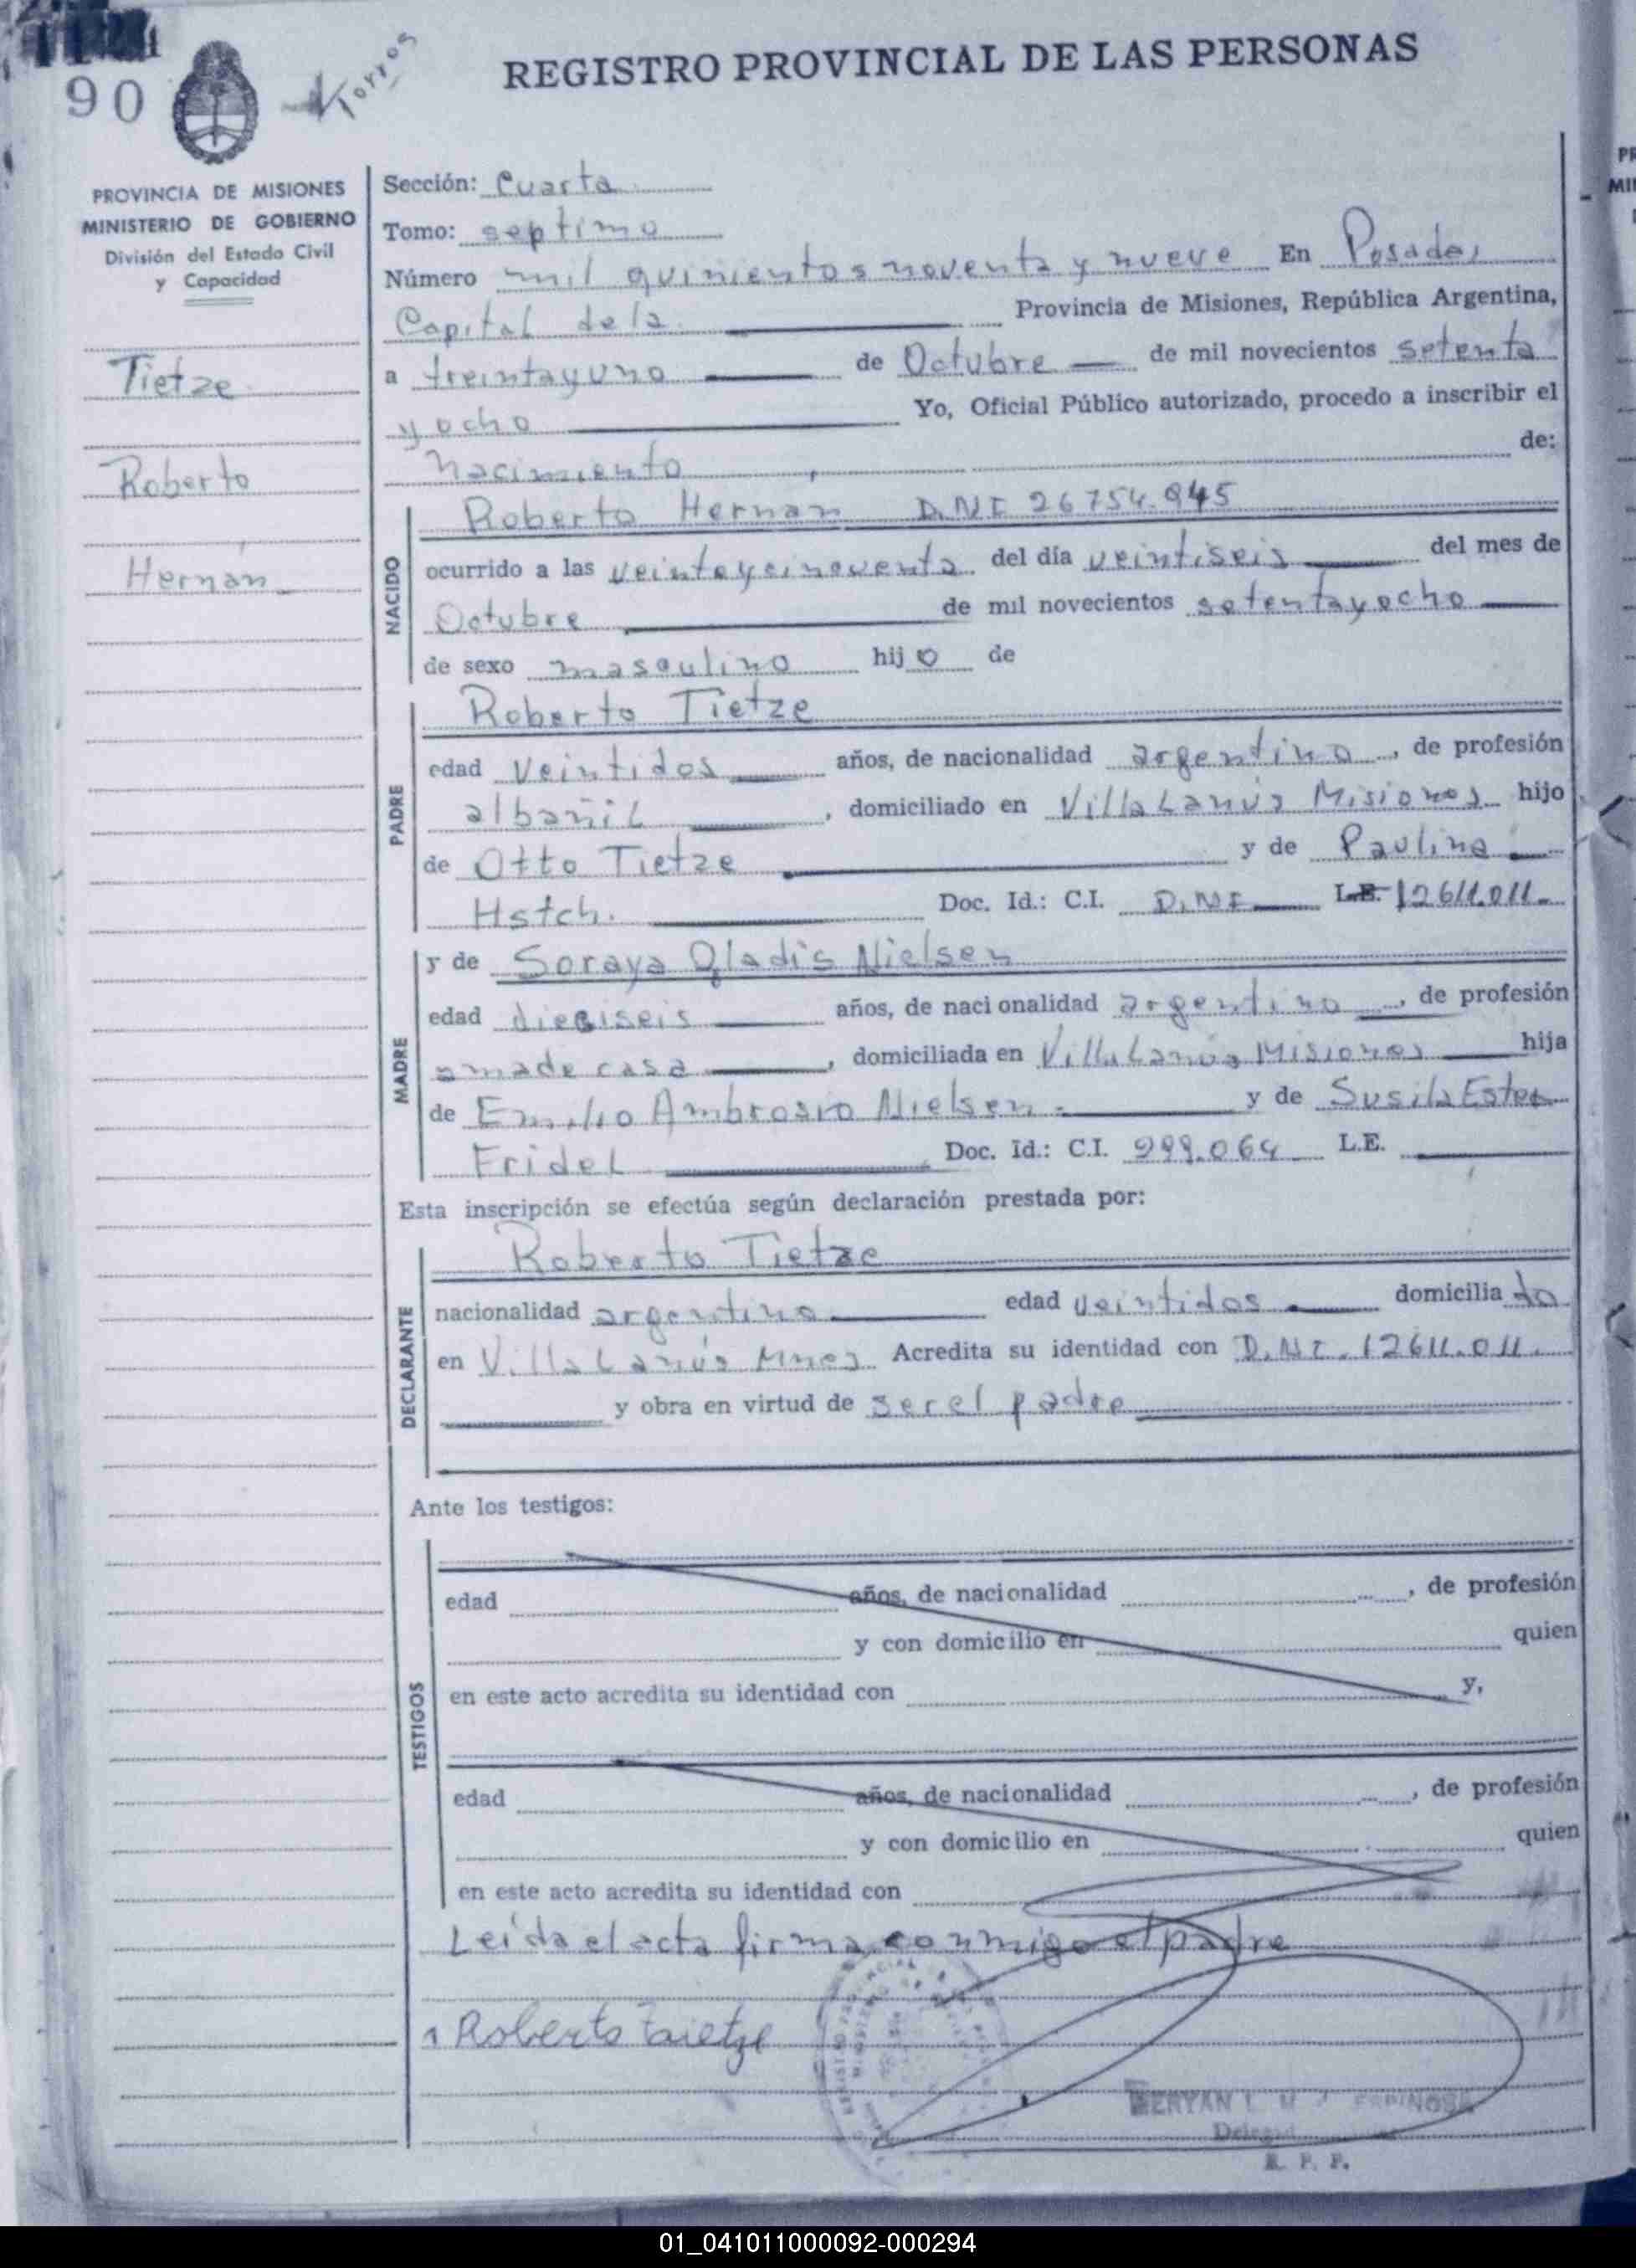 90
Korros
REGISTRO PROVINCIAL DE LAS PERSONAS
PROVINCIA DE MISIONES
MINISTERIO DE GOBIERNO
División del Estado Civil
y Capacidad
Tietze
Roberto
Hernán
Sección: Cuarta
Tomo: septimo
Número mil quinientos noventa y nueve En Posadas
Capital de la Provincia de Misiones, República Argentina,
a treintayuno de Octubre de mil novecientos setenta
y ocho Yo, Oficial Público autorizado, procedo a inscribir el
Nacimiento de:
NACIDO
Roberto Hernan D.N.I 26754.945
ocurrido a las veinteycincuenta del día veintiseis del mes de
Octubre de mil novecientos setentayocho
de sexo masculino hijo de
PADRE
Roberto Tietze
edad Veintidos años, de nacionalidad argentino, de profesión
albañil, domiciliado en Villa Lanús Misiones hijo
de Otto Tietze y de Paulina
Hstch. Doc. Id.: C.I. D.N.I L.E. 12611.011.
MADRE
y de Soraya Gladis Nielsen
edad dieciseis años, de nacionalidad argentina, de profesión
amade casa, domiciliada en Villa Lanús Misiones hija
de Emilio Ambrosio Nielsen. y de Susila Ester
Fridel Doc. Id.: C.I. 299.064 L.E.
Esta inscripción se efectúa según declaración prestada por:
DECLARANTE
Roberto Tietze
nacionalidad argentino edad veintidos domiciliado
en Villa Lanús Mnes Acredita su identidad con D.N.I. 12611.011.
y obra en virtud de ser el padre
Ante los testigos:
TESTIGOS
edad años, de nacionalidad , de profesión
y con domicilio en quien
en este acto acredita su identidad con y,
edad años, de nacionalidad , de profesión
y con domicilio en quien
en este acto acredita su identidad con
Leída el acta firma conmigo el padre
Roberto Tietze
ESPINOSA
R. P. P.
01_041011000092-000294